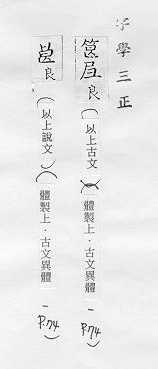 字學三正
良(以上古文)(體製上.古文異體一P.74)
良(以上說文)(體製上.古文異體一P.74)